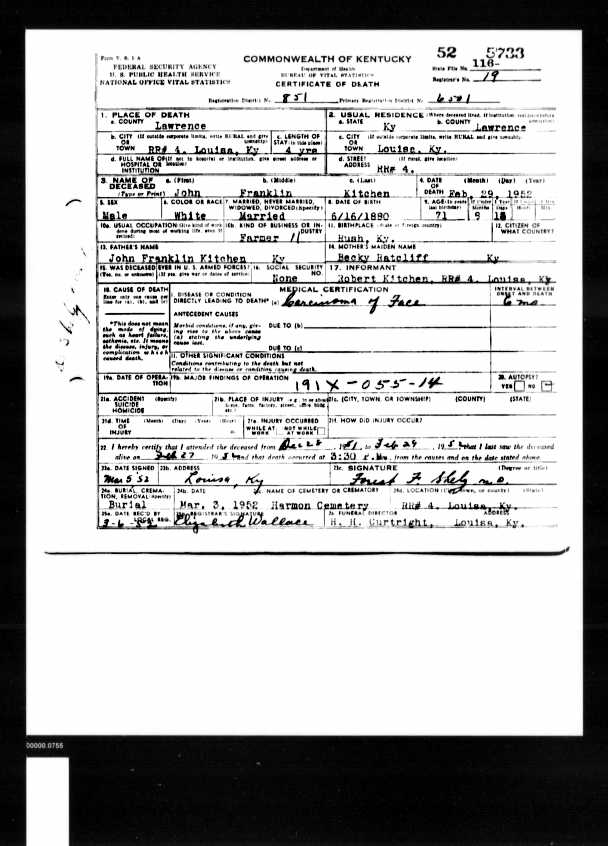 Form V. S. 1-A
FEDERAL SECURITY AGENCY
U. S. PUBLIC HEALTH SERVICE
NATIONAL OFFICE VITAL STATISTICS
COMMONWEALTH OF KENTUCKY
Department of Health
BUREAU OF VITAL STATISTICS
CERTIFICATE OF DEATH
52 5733
State File No. 116-
Registrar's No. 19
Registration District No. 851 Primary Registration District No. 6501
1. PLACE OF DEATH
a. COUNTY Lawrence
2. USUAL RESIDENCE (Where deceased lived. If institution: residence before
a. STATE Ky b. COUNTY Lawrence
b. CITY (If outside corporate limits, write RURAL and give township)
OR TOWN RR# 4. Louisa, Ky
c. LENGTH OF STAY (in this place) 4 yrs
c. CITY (If outside corporate limits, write RURAL and give township)
OR TOWN Louisa, Ky.
d. FULL NAME OF (If not in hospital or institution, give street address or location)
HOSPITAL OR INSTITUTION
d. STREET ADDRESS (If rural, give location)
RR# 4.
3. NAME OF DECEASED (Type or Print)
a. (First) John b. (Middle) Franklin c. (Last) Kitchen
4. DATE OF DEATH (Month) (Day) (Year) Feb, 29, 1952
5. SEX Male
6. COLOR OR RACE White
7. MARRIED, NEVER MARRIED, WIDOWED, DIVORCED (Specify) Married
8. DATE OF BIRTH 6/16/1880
9. AGE (In years last birthday) 71
10a. USUAL OCCUPATION (Give kind of work done during most of working life, even if retired)
10b. KIND OF BUSINESS OR INDUSTRY
Farmer
11. BIRTHPLACE (State or foreign country)
Hush, Ky.
12. CITIZEN OF WHAT COUNTRY?
13. FATHER'S NAME
John Franklin Kitchen Ky
14. MOTHER'S MAIDEN NAME
Becky Ratcliff Ky
15. WAS DECEASED EVER IN U. S. ARMED FORCES?
(Yes, no, or unknown) (If yes, give war or dates of service)
16. SOCIAL SECURITY NO.
None
17. INFORMANT
Robert Kitchen, RR# 4, Louisa, Ky
18. CAUSE OF DEATH
Enter only one cause per line for (a), (b), and (c)
MEDICAL CERTIFICATION
INTERVAL BETWEEN ONSET AND DEATH
I. DISEASE OR CONDITION
DIRECTLY LEADING TO DEATH* (a) Carcinoma of Face 6 mo
*This does not mean the mode of dying, such as heart failure, asthenia, etc. It means the disease, injury, or complication which caused death.
ANTECEDENT CAUSES
Morbid conditions, if any, giving rise to the above cause (a) stating the underlying cause last.
DUE TO (b)
DUE TO (c)
II. OTHER SIGNIFICANT CONDITIONS
Conditions contributing to the death but not
related to the disease or condition causing death.
19a. DATE OF OPERATION
19b. MAJOR FINDINGS OF OPERATION
191X-055-14
20. AUTOPSY?
YES NO
21a. ACCIDENT SUICIDE HOMICIDE (Specify)
21b. PLACE OF INJURY
21c. (CITY, TOWN, OR TOWNSHIP) (COUNTY) (STATE)
21d. TIME OF INJURY (Month) (Day) (Year) (Hour)
21e. INJURY OCCURRED
WHILE AT WORK NOT WHILE AT WORK
21f. HOW DID INJURY OCCUR?
22. I hereby certify that I attended the deceased from Dec 28 1951, to Feb 29, 1952 that I last saw the deceased
alive on Feb 27 1952 and that death occurred at 3:30 m., from the causes and on the date stated above.
23a. DATE SIGNED
Mar 5 52
23b. ADDRESS
Louisa, Ky
23c. SIGNATURE (Degree or title)
M.D.
24a. BURIAL, CREMATION, REMOVAL (Specify)
Burial
24b. DATE
Mar. 3, 1952
24c. NAME OF CEMETERY OR CREMATORY
Harmon Cemetery
24d. LOCATION (City, town, or county) (State)
RR# 4. Louisa, Ky.
25a. DATE REC'D BY LOCAL REG.
3-6-52
25b. REGISTRAR'S SIGNATURE
Elizabeth Wallace
FUNERAL DIRECTOR ADDRESS
H. H. Curtright, Louisa, Ky.
00000.0755